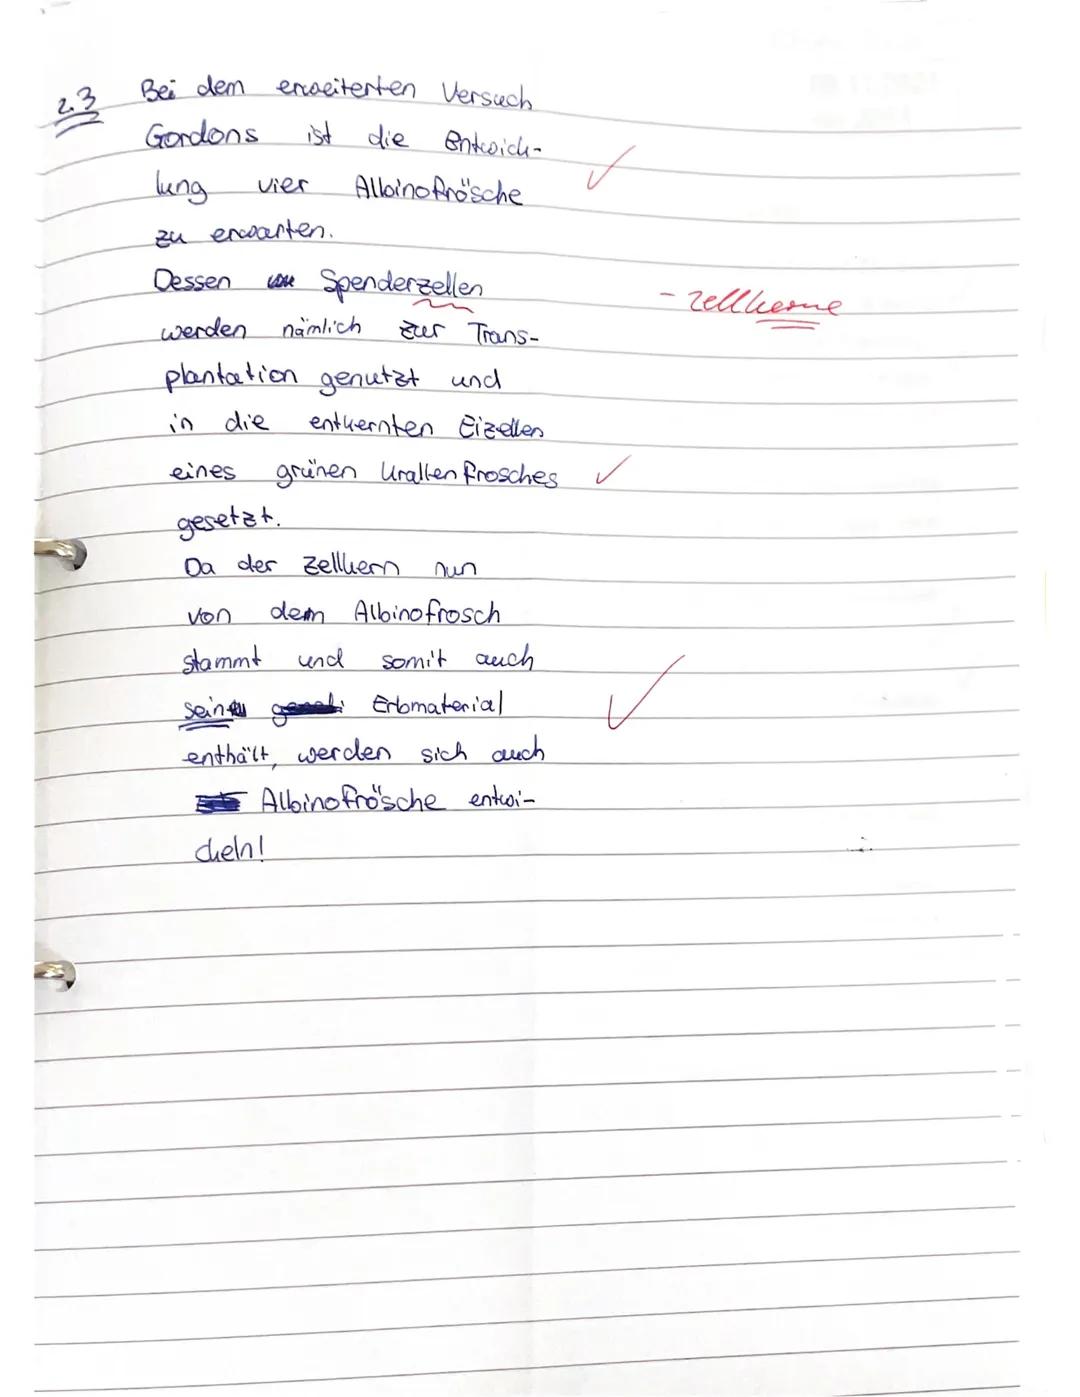 2.3 Bei dem erweiterten Versuch
Gordons ist die Entwick-
lung vier Albinofrösche ✓
zu erwarten.
Dessen Spenderzellen - Zellkerne
werden nämlich zur Trans-
plantation genutzt und
in die entkernten Eizellen
eines grünen Urallenfrosches ✓
gesetzt.
Da der Zellkern nun
von dem Albinofrosch
stammt und somit auch
sein Erbmaterial ✓
enthält, werden sich auch
Albinofrösche entwi-
ckeln!